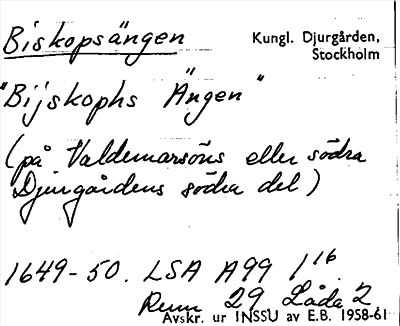 Biskopsängen
Kungl. Djurgården,
Stockholm
"Bijskophs Ängen"
(på Valdemarsöns eller södra
Djurgårdens södra del)
1649-50. LSA A99 1 16
Rum 29 Låda 2
Avskr. ur INSSU av E.B. 1958-61